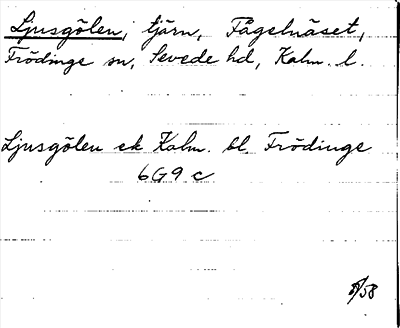 Ljusgölen, tjärn, Fågelnäset,
Frödinge sn, Sevede hd, Kalm. l.
Ljusgölen ek Kalm. bl. Frödinge
6G9c
/58